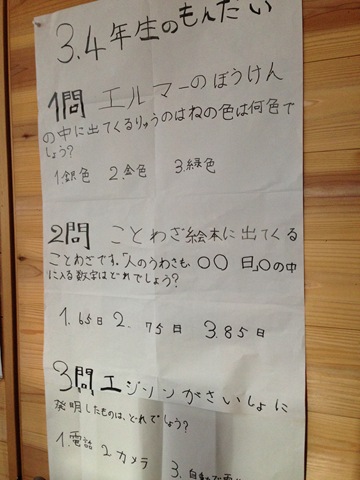 3.4年生のもんだい
1問 エルマーのぼうけん
の中に出てくるりゅうのはねの色は何色で
しょう?
1.銀色 2.金色 3.緑色
2問 ことわざ絵本に出てくる
ことわざです。「人のうわさも〇〇日」〇の中
に入る数字はどれでしょう?
1.65日 2.75日 3.85日
3問 エジソンがさいしょに
発明したものは、どれでしょう?
1.電話 2.カメラ 3.自動